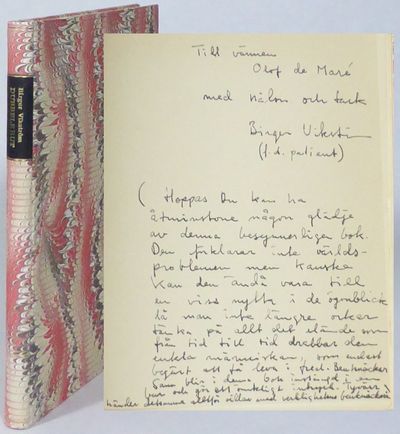 Birger Vikström
DUBBELBUF
Till vännen
Olof de Maré
med hälsn och tack
Birger Vikstr
(f.d. patient)
( Hoppas Du kan ha
åtminstone någon glädje
av denna besynnerliga bok.
Den förklarar inte världs-
problemen men kanske
kan den ändå vara till
en viss nytta i de ögonblick
då man inte längre orkar
tänka på allt det elände som
från tid till tid drabbar den
enkla människan, som endast
begärt att få leva i fred. Benknäcker
Sam blir i denna bok instängd i en
bur och gör ett ömkligt intryck. Tyvärr
händer detsamma alltför sällan med verklighetens benknäckare)